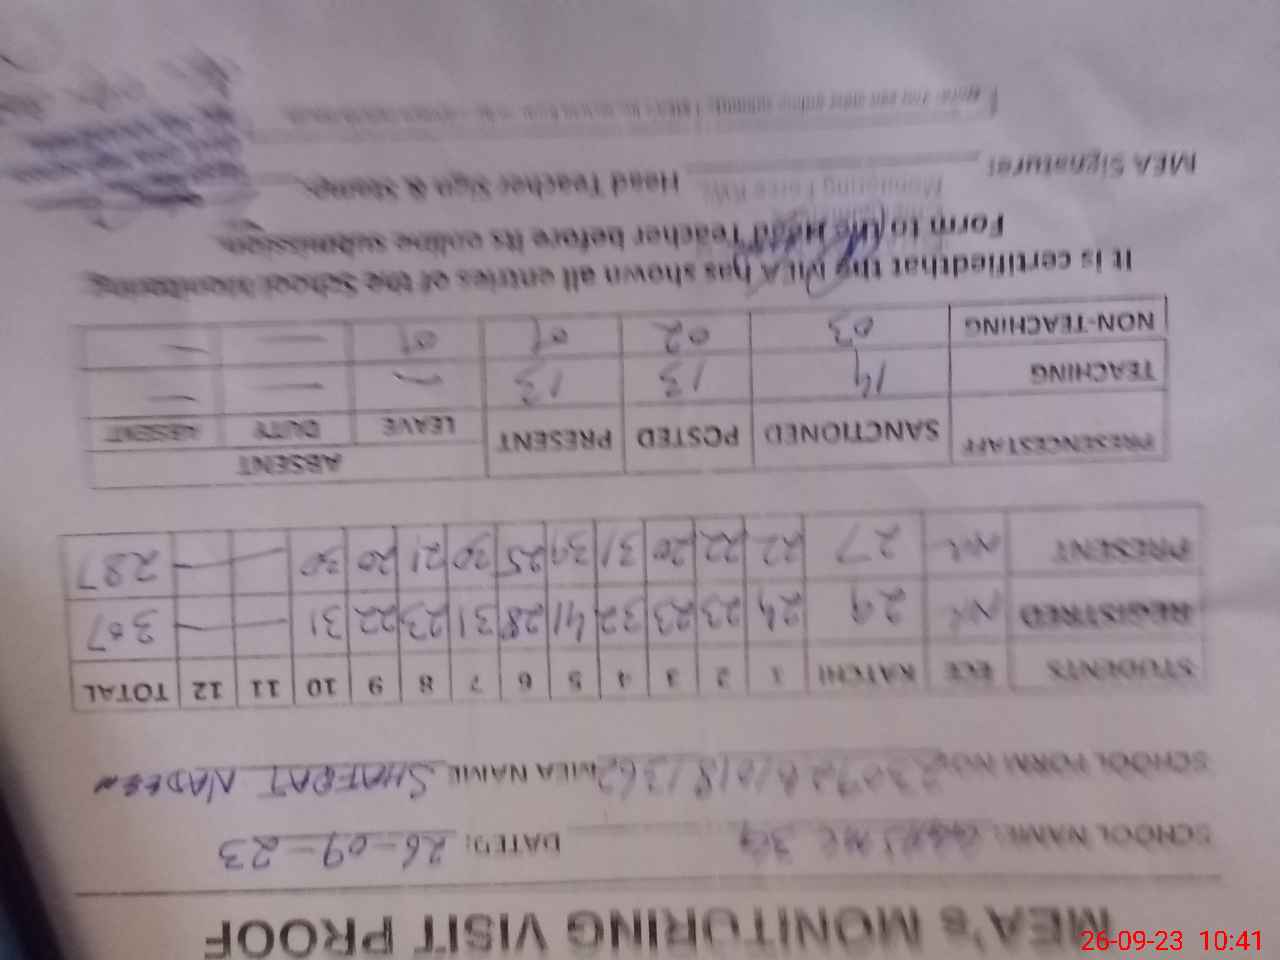 MEA's MONITORING VISIT PROOF
SCHOOL NAME: DATED: 26-09-23
SCHOOL FORM NO: MEA NAME: SHAFQAT NADEEM
STUDENTS ECE KATCHI 1 2 3 4 5 6 7 8 9 10 11 12 TOTAL
REGISTRED NR 29 24 23 23 32 41 28 31 23 22 31 — — 307
PRESENT NR 27 22 22 20 31 39 25 30 21 20 30 — — 287
PRESENCESTAFF SANCTIONED POSTED PRESENT ABSENT
LEAVE DUTY ABSENT
TEACHING 14 13 13 — — —
NON-TEACHING 03 02 01 01 — —
It is certifiedthat the MEA has shown all entries of the School Monitoring
Form to the Head Teacher before its online submission.
MEA Signature: Head Teacher Sign & Stamp:
26-09-23 10:41